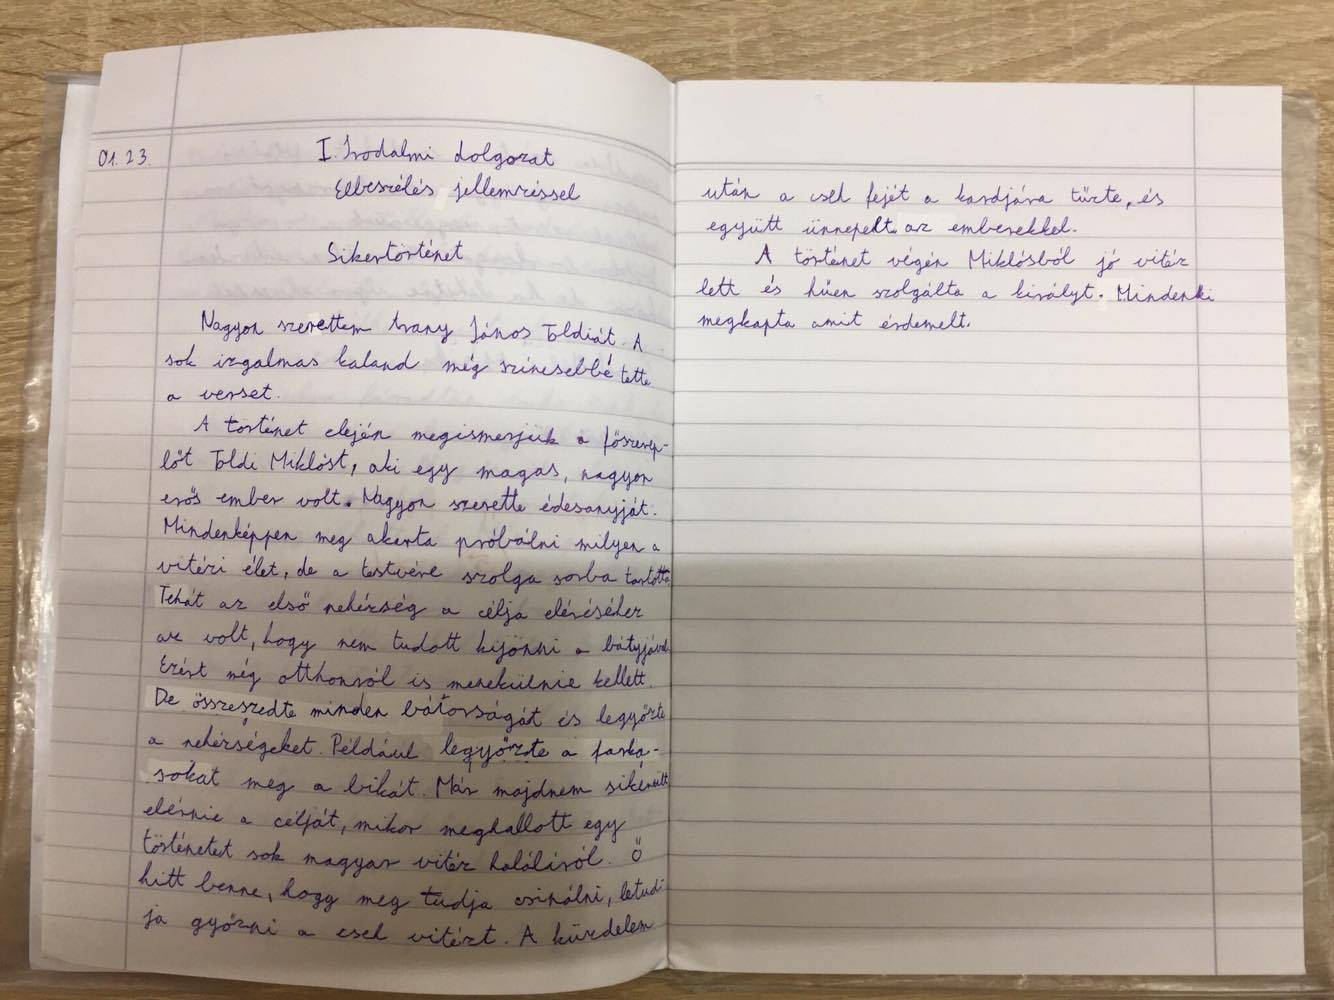 01.23.
I. Irodalmi dolgozat
Elbeszélés jellemzéssel
Sikertörténet
Nagyon szerettem Arany János Toldiát. A
sok izgalmas kaland még színesebbé tette
a verset.
A történet elején megismerjük a főszerep-
lőt Toldi Miklóst, aki egy magas, nagyon
erős ember volt. Nagyon szerette édesanyját.
Mindenképpen meg akarta próbálni milyen a
vitézi élet, de a testvére szolga sorba tartotta.
Tehát az első nehézség a célja eléréséhez
az volt, hogy nem tudott kijönni a bátyjával.
Ezért még otthonról is menekülnie kellett.
De összeszedte minden bátorságát és legyőzte
a nehézségeket. Például legyőzte a farka-
sokat meg a bikát. Már majdnem sikerült
elérnie a célját, mikor meghallott egy
történetet sok magyar vitéz haláláról. Ő
hitt benne, hogy meg tudja csinálni, letud-
ja győzni a cseh vitézt. A küzdelem
után a cseh fejét a kardjára tűzte, és
együtt ünnepelt az emberekkel.
A történet végén Miklósból jó vitéz
lett és hűen szolgálta a királyt. Mindenki
megkapta amit érdemelt.